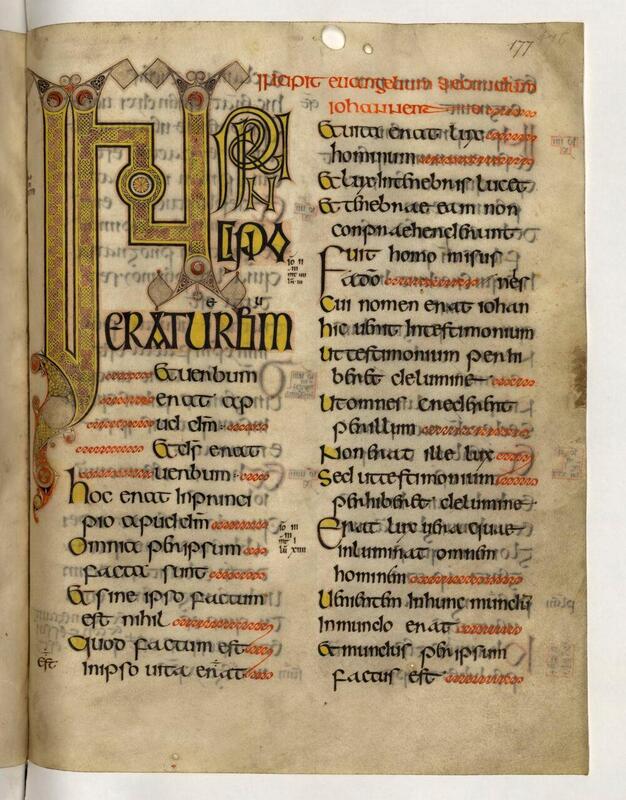 177
Incipit euangelium secundum
iohannem
IN PRIN
CIPIO
ERAT UERBUM
Et uerbum
erat ap
ud dm
Et ds erat
uerbum
hoc erat Inprinci
pio apud dm
Omnia per ipsum
facta sunt
Et sine ipso factum
est nihil
Quod factum est
Inipso uita erat
est
Et uita erat lux
hominum
Et lux Intenebris lucet
Et tenebrae eam non
conpraehenderunt
Fuit homo misus
a do
nes
Cui nomen erat iohan
hic uenit Intestimonium
Ut testimonium perhi
beret de lumine
Ut omnes crederent
per illum
Non erat ille lux
Sed ut testimonium
perhiberet de lumine
Erat lux uera quae
inluminat omnem
hominem
Uenientem Inhunc mundu
Inmundo erat
Et mundus per ipsum
factus est